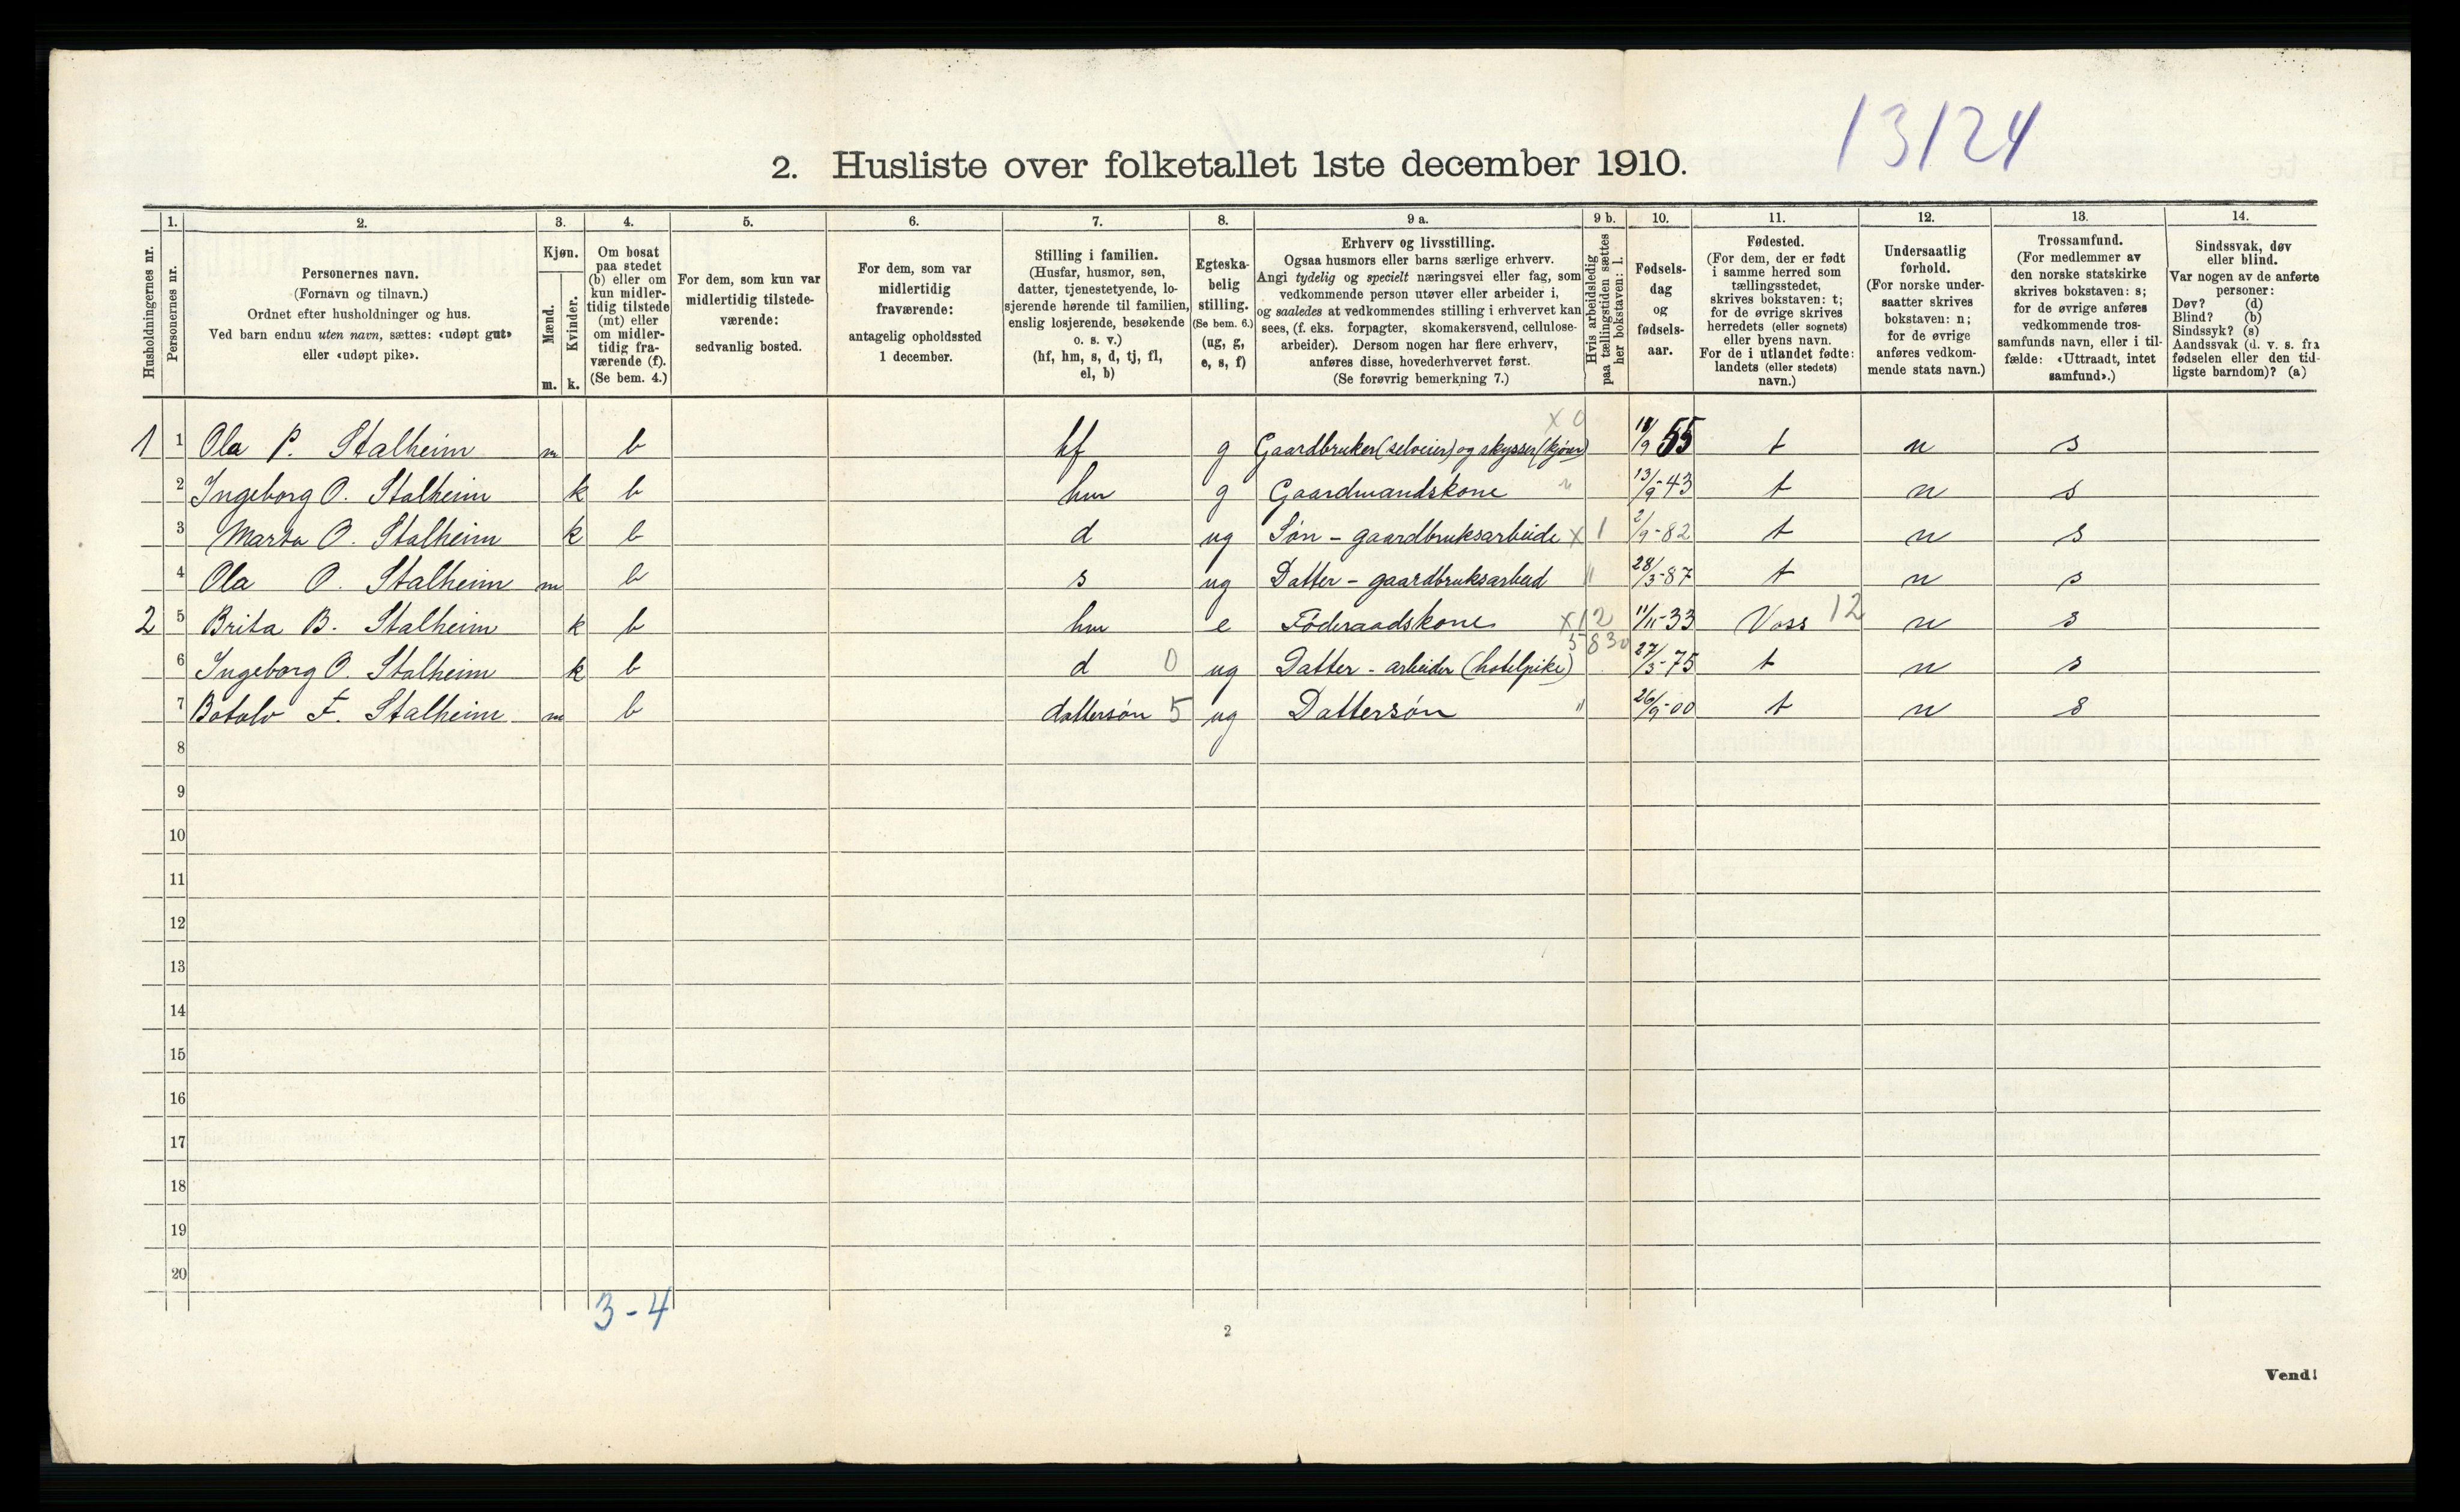 13124
2. Husliste over folketallet 1ste december 1910.
1. 2. 3. 4. 5. 6. 7. 8. 9 a. 9 b. 10. 11. 12. 13. 14.
Husholdningernes nr.
Personernes nr.
Personernes navn.
(Fornavn og tilnavn.)
Ordnet efter husholdninger og hus.
Ved barn endnu uten navn, sættes: «udøpt gut»
eller «udøpt pike».
Kjøn.
Mænd.
Kvinder.
m. k.
Om bosat
paa stedet
(b) eller om
kun midler-
tidig tilstede
(mt) eller
om midler-
tidig fra-
værende (f).
(Se bem. 4.)
For dem, som kun var
midlertidig tilstede-
værende:
sedvanlig bosted.
For dem, som var
midlertidig
fraværende:
antagelig opholdssted
1 december.
Stilling i familien.
(Husfar, husmor, søn,
datter, tjenestetyende, lo-
sjerende hørende til familien,
enslig losjerende, besøkende
o. s. v.)
(hf, hm, s, d, tj, fl,
el, b)
Egteska-
belig
stilling.
(Se bem. 6.)
(ug, g,
e, s, f)
Erhverv og livsstilling.
Ogsaa husmors eller barns særlige erhverv.
Angi tydelig og specielt næringsvei eller fag, som
vedkommende person utøver eller arbeider i,
og saaledes at vedkommendes stilling i erhvervet kan
sees, (f. eks. forpagter, skomakersvend, cellulose-
arbeider). Dersom nogen har flere erhverv,
anføres disse, hovederhvervet først.
(Se forøvrig bemerkning 7.)
Hvis arbeidsledig
paa tællingstiden sættes
her bokstaven: l.
Fødsels-
dag
og
fødsels-
aar.
Fødested.
(For dem, der er født
i samme herred som
tællingsstedet,
skrives bokstaven: t;
for de øvrige skrives
herredets (eller sognets)
eller byens navn.
For de i utlandet fødte:
landets (eller stedets)
navn.)
Undersaatlig
forhold.
(For norske under-
saatter skrives
bokstaven: n;
for de øvrige
anføres vedkom-
mende stats navn.)
Trossamfund.
(For medlemmer av
den norske statskirke
skrives bokstaven: s;
for de øvrige anføres
vedkommende tros-
samfunds navn, eller i til-
fælde: «Uttraadt, intet
samfund».)
Sindssvak, døv
eller blind.
Var nogen av de anførte
personer:
Døv? (d)
Blind? (b)
Sindssyk? (s)
Aandssvak (d. v. s. fra
fødselen eller den tid-
ligste barndom)? (a)
x 0
1 1 Ola P. Stalheim m b hf g Gaardbruker (selveier) og skysser (kjører) 18/9 55 t n s
2 Ingeborg O. Stalheim k b hm g Gaardmandskone " 13/9-43 t n s
3 Marta O. Stalheim k b d ug Søn - gaardbruksarbeide x 1 2/9-82 t n s
4 Ola O. Stalheim m b s ug Datter - gaardbruksarbeid " 28/3-87 t n s
2 5 Brita B. Stalheim k b hm e Føderaadskone x12 11/11-33 Voss 12 n s
5830
6 Ingeborg O. Stalheim k b d 0 ug Datter - arbeider (hotelpike) 27/3-75 t n s
7 Botolv F. Stalheim m b dattersøn 5 ug Dattersøn " 26/9-00 t n s
8
9
10
11
12
13
14
15
16
17
18
19
20
3-4
2
Vend!